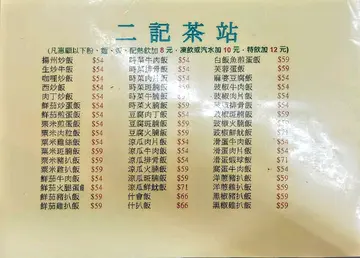 二記茶站
(凡惠顧以下粉、麵、飯、配熱飲加 8 元，凍飲或汽水加 10 元，特飲加 12 元)
揚州炒飯 $54 時菜牛肉飯 $54 白飯魚煎蛋飯 $59
生炒牛飯 $54 時菜排骨飯 $54 芙蓉蛋飯 $59
咖喱炒飯 $54 時菜肉片飯 $54 麻婆豆腐飯 $54
西炒飯 $54 時菜肉丁飯 $54 豉椒牛肉飯 $54
肉丁炒飯 $54 時菜斑腩飯 $59 豉椒肉片飯 $54
鮮茄炒蛋飯 $54 時菜火腩飯 $59 豉椒排骨飯 $54
鮮茄煎蛋飯 $54 豆腐肉丁飯 $54 豉椒斑腩飯 $59
粟米煎蛋飯 $54 豆腐斑腩飯 $59
粟米肉粒飯 $54 豆腐火腩飯 $59 豉椒鮮魷飯 $71
粟米雞絲飯 $54 涼瓜肉片飯 $54 滑蛋牛肉飯 $54
粟米斑腩飯 $59 涼瓜牛肉飯 $54 滑蛋肉片飯 $54
粟米豬扒飯 $59 涼瓜排骨飯 $54 滑蛋蝦球飯 $71
粟米雞扒飯 $59 涼瓜火腩飯 $59 窩蛋牛肉飯 $54
鮮茄牛肉飯 $54 涼瓜斑腩飯 $59 洋蔥豬扒飯 $59
鮮茄火腿蛋飯 $54 涼瓜鮮魷飯 $71 洋蔥雞扒飯 $59
鮮茄豬扒飯 $59 什會飯 $66 黑椒豬扒飯 $59
鮮茄雞扒飯 $59 什扒飯 $66 黑椒雞扒飯 $59